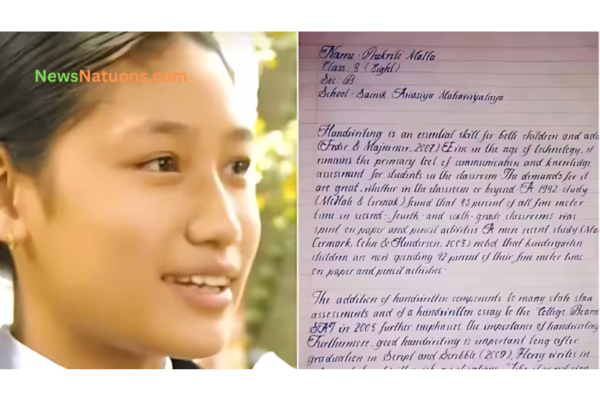 NewsNatuons.com
Name: Prakriti Malla
Class: 8 (Eight)
Sec: B
School: Sainik Awasiya Mahavidyalaya
Handwriting is an essential skill for both children and adu
(Feder & Majnemer, 2007) Even in the age of technology, it
remains the primary tool of communication and knowledge
assessment for students in the classroom. The demands for it
are great, whether in the classroom or beyond. A 1992 study
(McHale & Cermak) found that 85 percent of all fine motor
time in second- fourth- and sixth- grade classrooms was
spent on paper and pencil activities. A more recent study (Ma
Cermark, Cohn & Henderson, 2003) noted that kindergarten
children are now spending 42 percent of their fine motor time
on paper and pencil activities.
The addition of handwritten components to many state stan
assessments and of a handwritten essay to the College Board
SAT in 2005 further emphasis the importance of handwriting
Furthermore, good handwriting is important long after
graduation in Script and Scribble (2009), Florey writes in